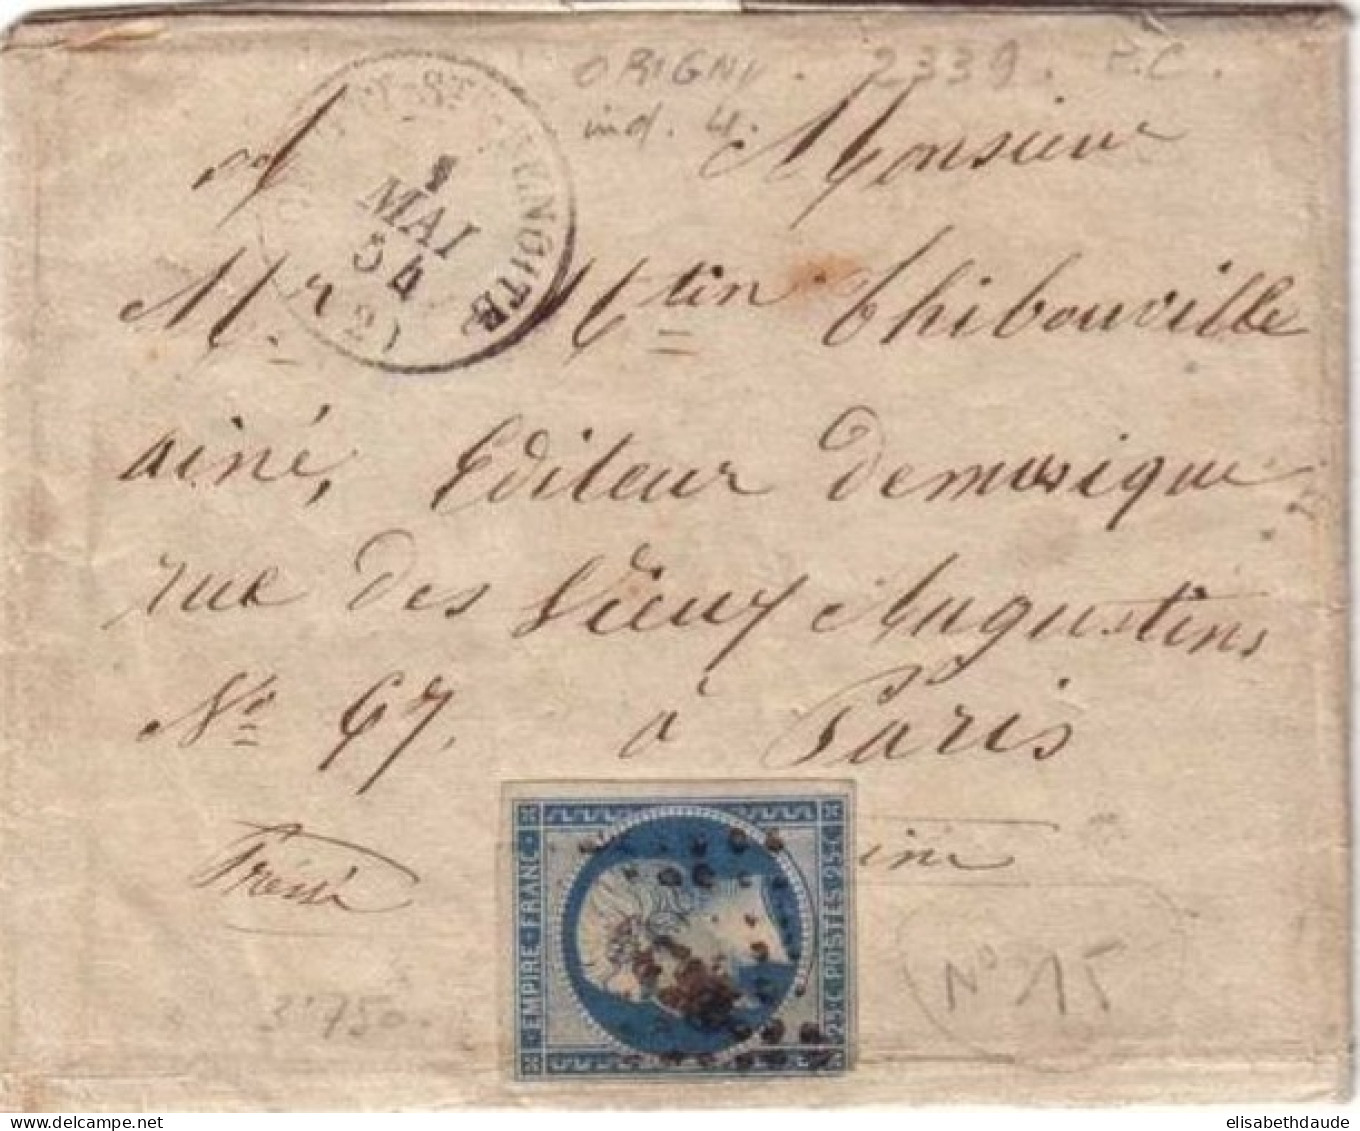 ORIGNY. 2339. P.C.
ind. 4.
A Monsieur
1
MAI
54
(2)
Mr. Mtin Thibouville
ainé, Editeur de musique
rue des Vieux Augustins
No 67, à Paris
Pressé
EMPIRE FRANC
25·C·POSTES·25·C
No 15
3'750
elisabethdaude